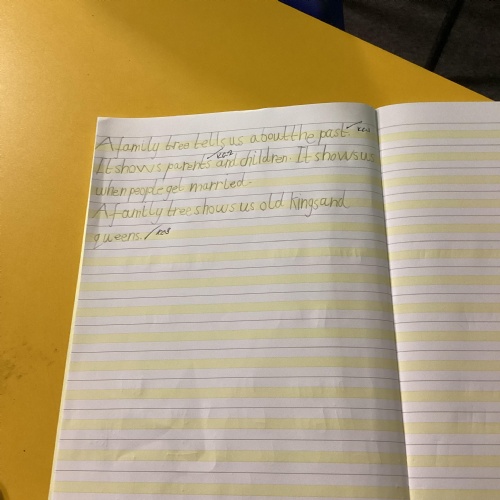 A family tree tells us about the past.
It shows parents and children. It shows us
when people get married.
A family tree shows us old kings and
queens.